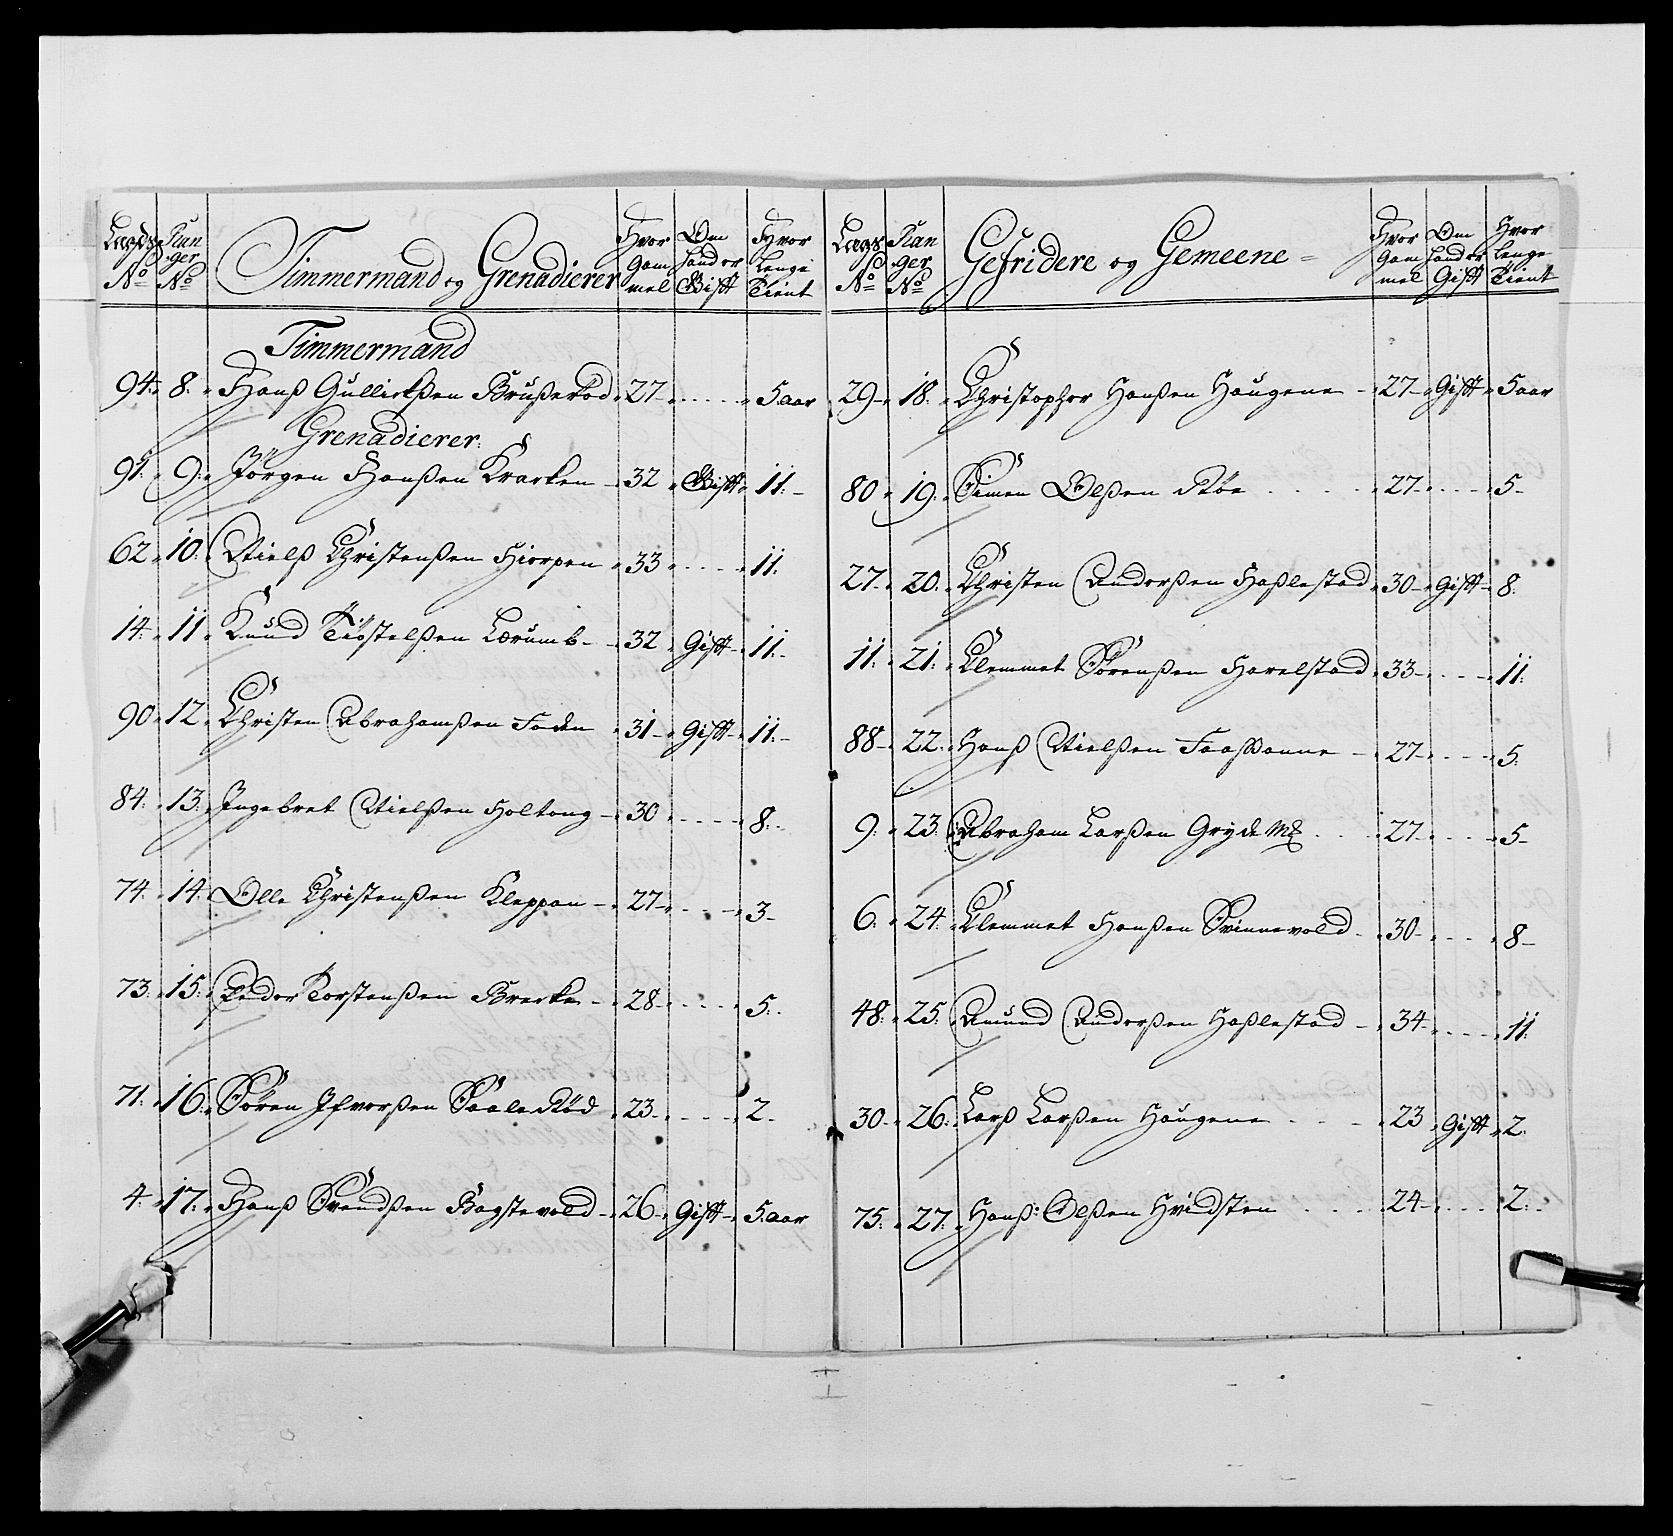 Lægds No Ran ger No Timmermand og Grenadierer Hvor Gam mel Om hand er Gift Hvor Lenge Tient
Timmermand
94 8 Hanß Gullichßen Brußerød 27 5 aar
Grenadierer
91 9 Jørgen Hanßen Kracken 32 Gift 11
62 10 Nielß Christenßen Hiorpen 33 11
14 11 Knud Kiøstelßen Lærumb 32 Gift 11
90 12 Christen Abrahamßen Foden 31 Gift 11
84 13 Ingebret Nielßen Holtong 30 8
74 14 Olle Christenßen Kleppan 27 3
73 15 Peder Torstenßen Brecke 28 5
71 16 Søren Ifvorßen Saale Rød 23 2
4 17 Hanß Svendßen Bogstevold 26 Gift 5 aar
Lægds No Ran ger No Gefridere og Gemeene Hvor Gam mel Om hand er Gift Hvor Lenge Tient
29 18 Christopher Hanßen Haugene 27 Gift 5 aar
80 19 Simen Olßen Røe 27 5
27 20 Christen Anderßen Haßlestad 30 Gift 8
11 21 Clemmet Sørenßen Harelstad 33 11
88 22 Hanß Nielßen 27 5
9 23 Abraham Larßen Gryde 27 5
6 24 Clemmet Hanßen Svinnevold 30 8
48 25 Amund Anderßen Haßlestad 34 11
30 26 Larß Larßen Haugene 23 Gift 2
75 27 Hanß Olßen Hvidsten 24 2